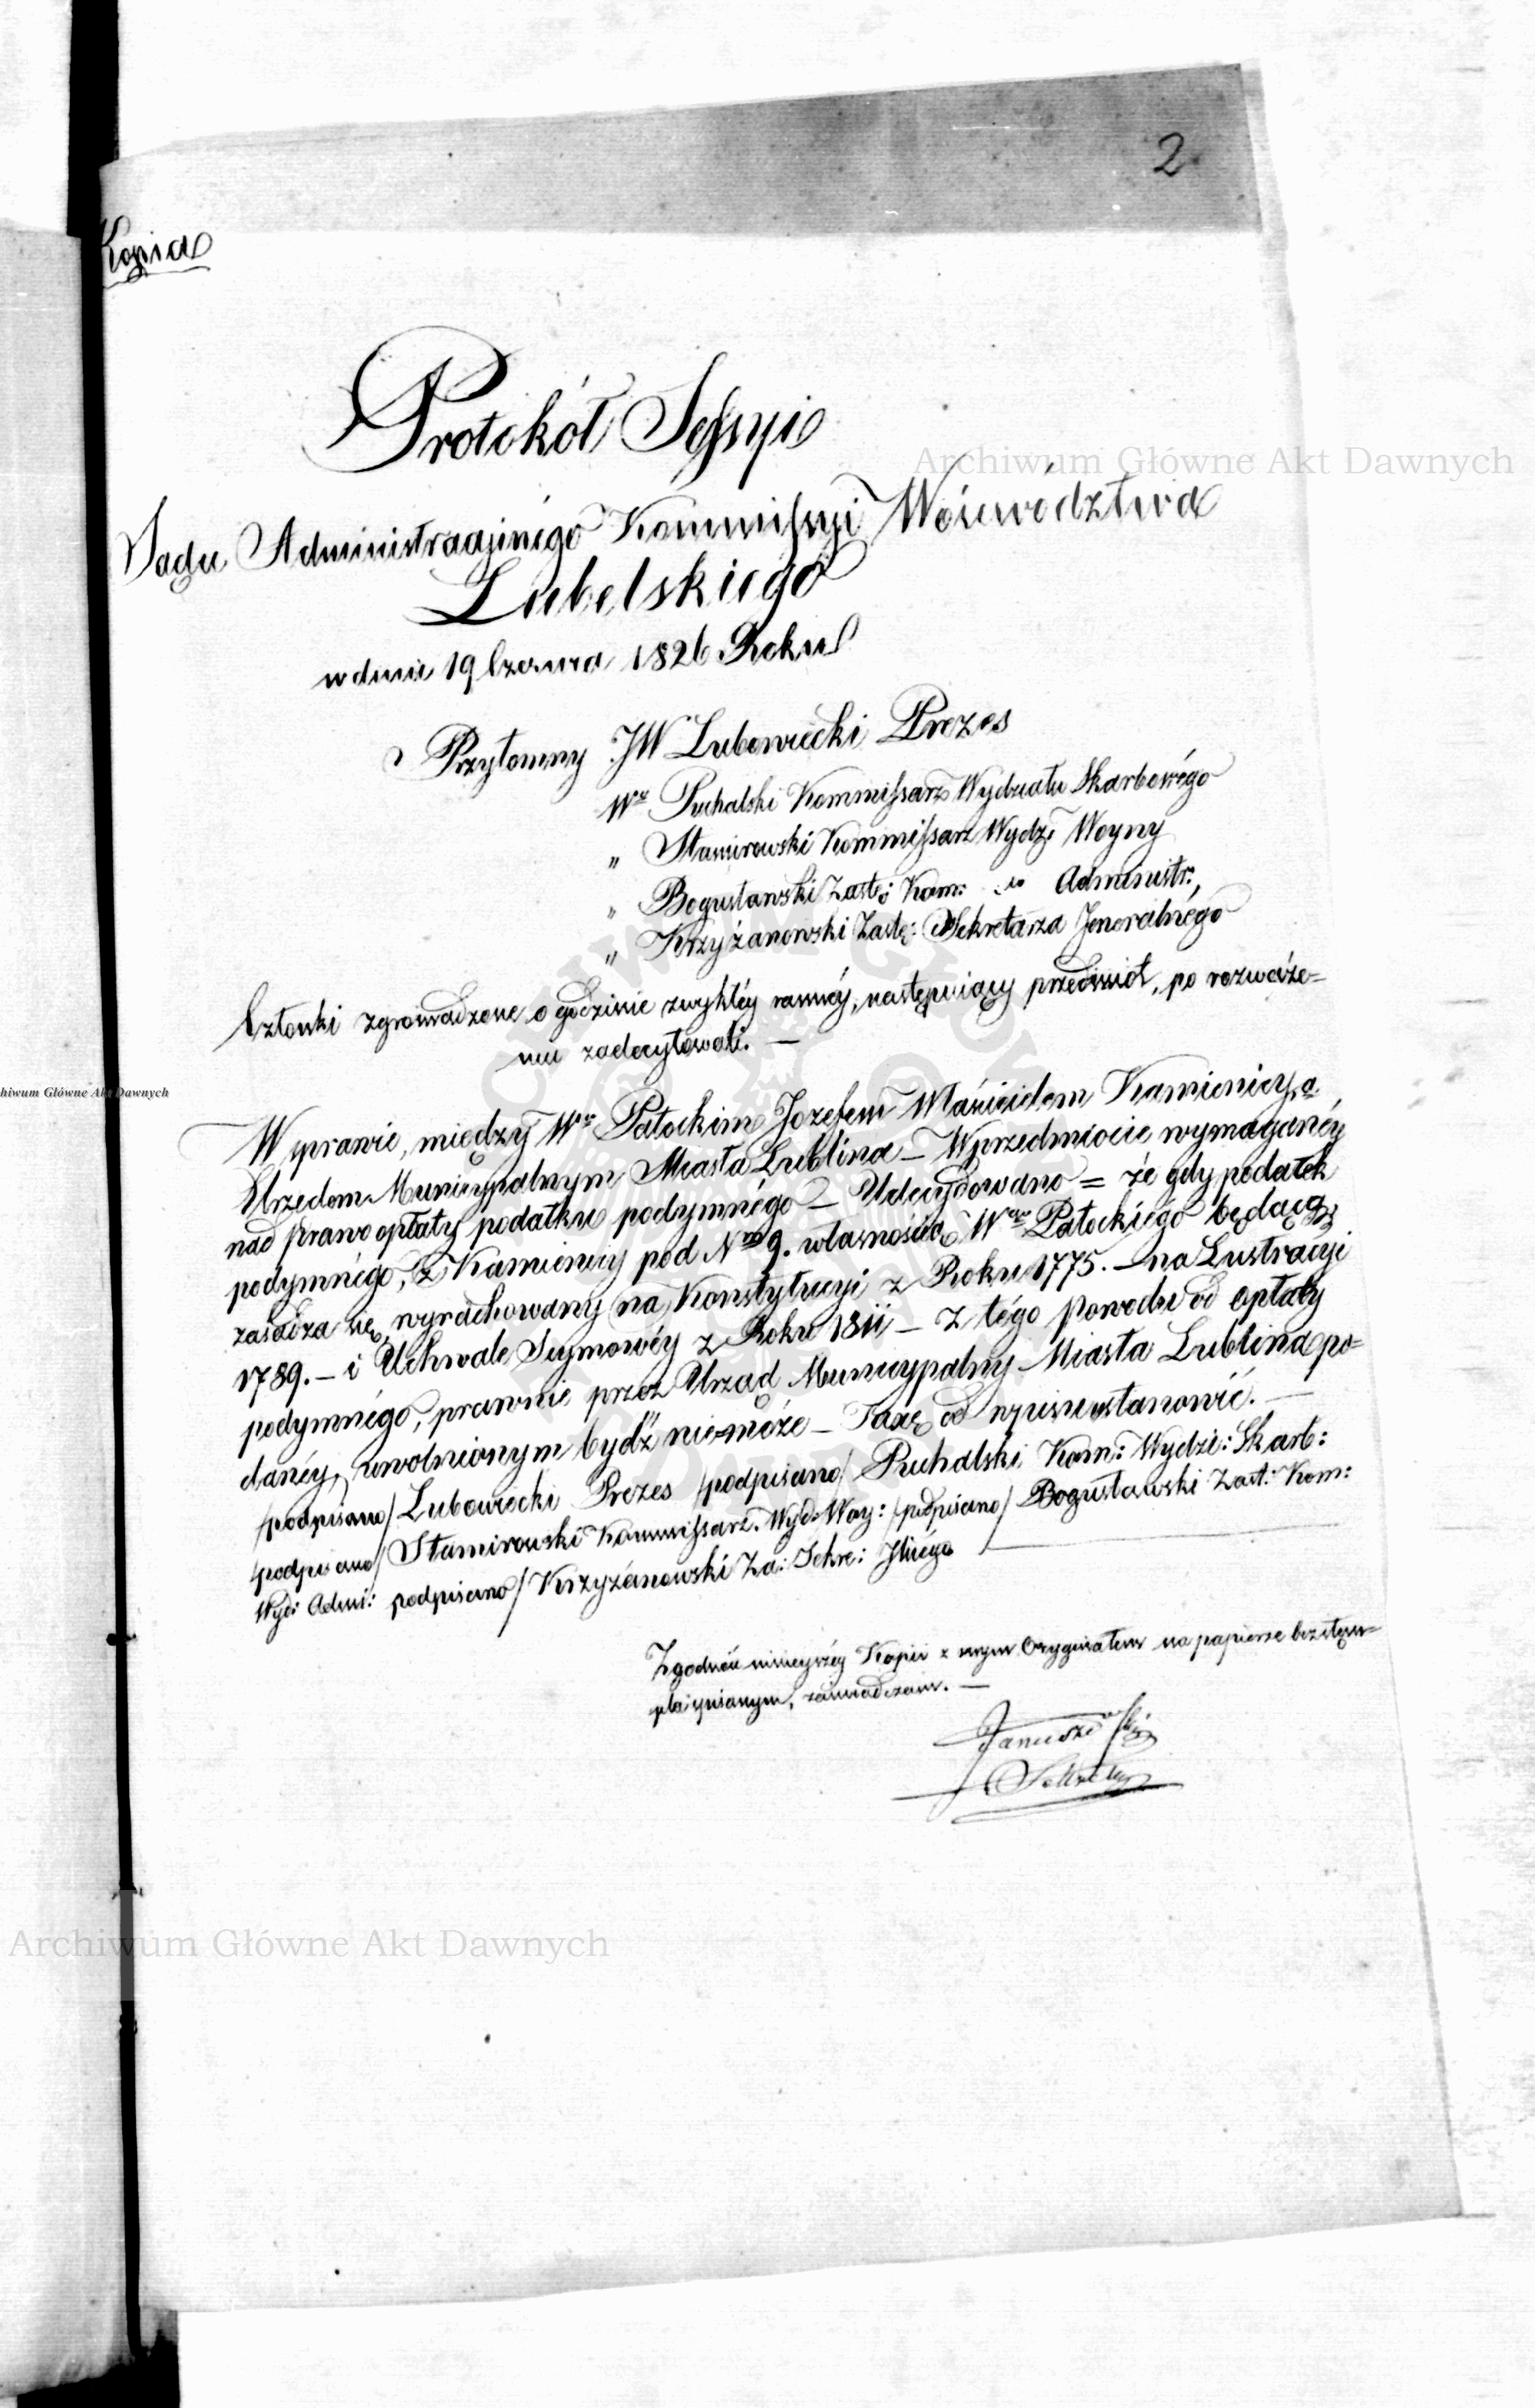 2
Kopia
Protokół Sessyi
Sądu Administracyinégo Kommissyi Woiewództwa
Lubelskiego
w dniu 19 Czerwca 1826 Roku
Przytomny JW Lubowiecki Prezes
Wny Puchalski Kommissarz Wydziału Skarbowégo
" Stamirowski Kommissarz Wydz: Woyny
" Bogusławski Zastę: Kom: Administr:,
" Krzyżanowski Zastę: Sekretarza Jeneralnégo
Członki zgromadzone o godzinie zwykłéy rannéy, następuiący przedmiot, po rozważe=
niu zadecytowali. —
W sprawie, między Wm Patockim Jozefem Właścicielem Kamienicy, a
Urzędem Municypalnym Miasta Lublina — W przedmiocie wymaganéy
nad prawo opłaty podatku podymnégo — Udecydowano = że gdy podatek
podymnégo, z Kamienicy pod Nrm 9. własnością Wgo Patockiégo będącey
zasadza się, wyrachowany na Konstytucyi z Roku 1775. — na Lustracyi
1789. — i Uchwale Seymowéy z Roku 1811 — z tégo powodu od opłaty
podymnégo, prawnie przez Urząd Municypalny Miasta Lublina po=
danéy, uwolnionym bydź nie może — Taxę od wpisu ustanowić. —
/podpisano/ Lubowiecki Prezes /podpisano/ Puchalski Kom: Wydzi: Skarb:
/podpisano/ Stamirowski Kommissarz. Wyd: Woy: /podpisano/ Bogusławski Zast: Kom:
Wyd: Admi: podpisano/ Krzyżanowski Za: Sekre: Jlnégo
Zgodność ninieyszéy Kopii z swym Oryginałem na papierze bez stęm=
pla pisanym, zaświadczam. —
Januszewski
Sekretarz
Archiwum Główne Akt Dawnych
hiwum Główne Akt Dawnych
Archiwum Główne Akt Dawnych